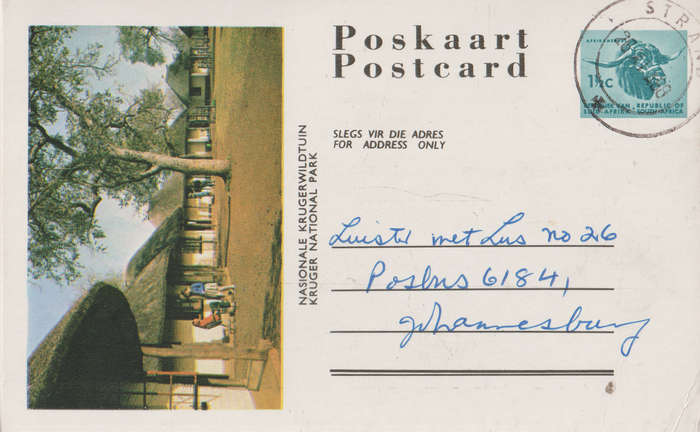 Poskaart
Postcard
SLEGS VIR DIE ADRES
FOR ADDRESS ONLY
NASIONALE KRUGERWILDTUIN
KRUGER NATIONAL PARK
STRAN
1½C
REPUBLIEK VAN REPUBLIC OF
SUID-AFRIKA SOUTH AFRICA
Luister met Lus no 26
Posbus 6184,
Johannesburg